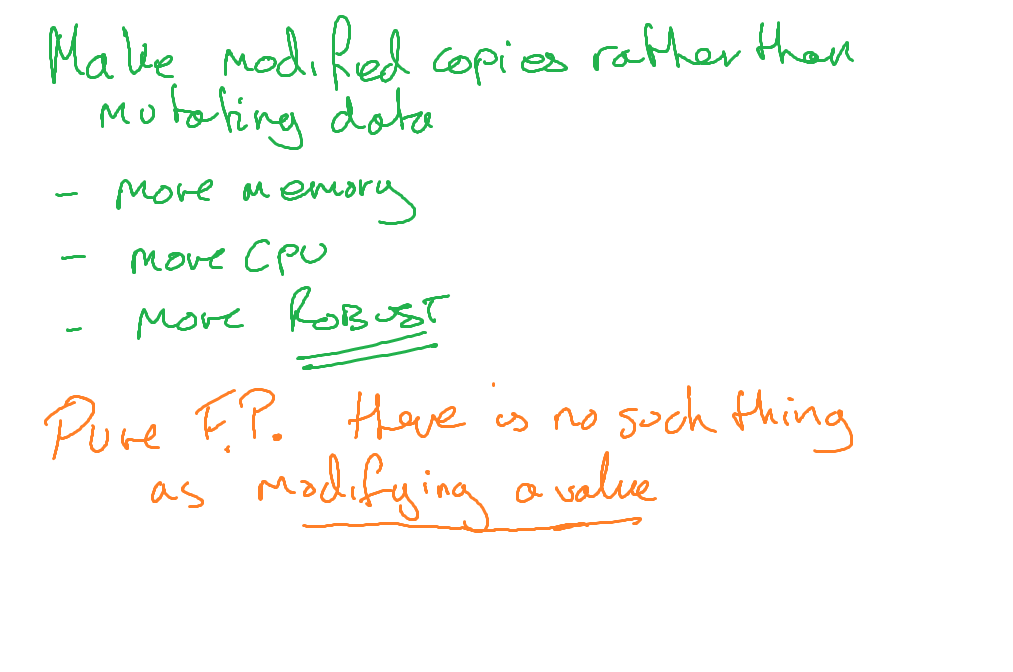 Make modified copies rather than
mutating data
- more memory
- more CPU
- more ROBUST
Pure F.P. there is no such thing
as modifying a value